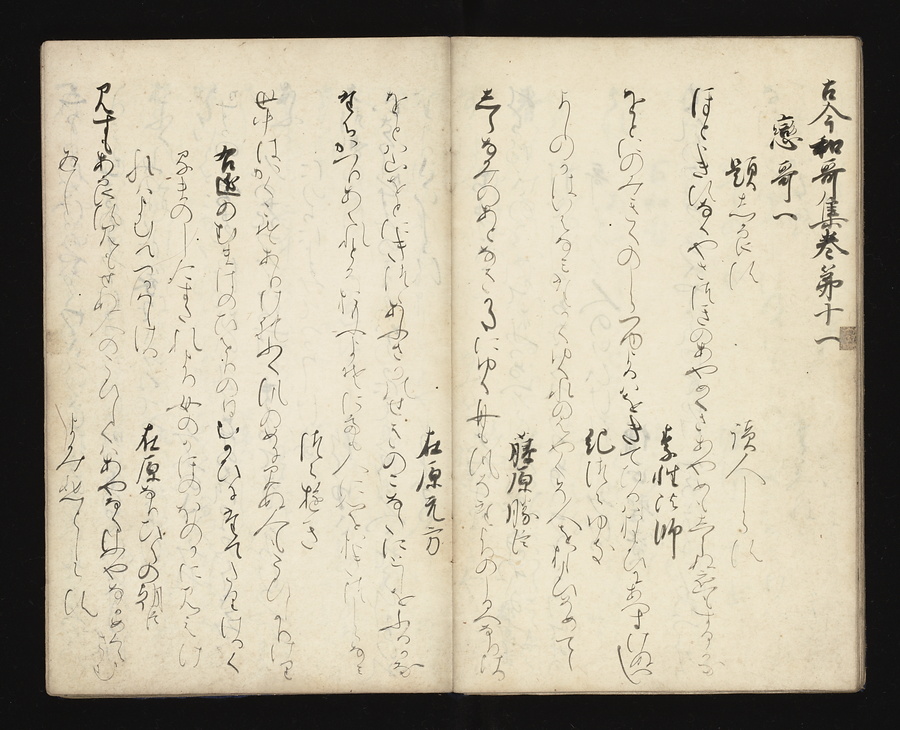 古今和哥集巻第十一
戀哥一
題しらす
読人しらす
ほとゝきすなくやさ月のあやめくさあやめもしらぬこひもするかな
素性法師
をとにのみきくのしらつゆよるはおきてひるは思ひにあすけぬへし
紀つらゆき
よしのかはいはなみたかくゆく水のはやくそ人を思ひそめてし
藤原勝臣
しらなみのあとなきかたにゆく舟も風そたよりのしるへなりける
在原元方
をとは山をとにきゝつゝあふさかのせきのこなたにとしをふるかな
たちかへりあはれとそ思よそにても人にこゝろをおきつしらなみ
つらゆき
世中はかくこそありけれ吹風のめに見ぬ人もこひしかりけり
右近のむまはのひをりの日むかひにたてたりける
くるまのしたすたれより女のかほのほのかに見えけ
れはよむてつかはしける
在原なりひらの朝臣
見すもあらす見もせぬ人のこひしくはあやなくけふやなかめくらさむ
返し
よみ人しらす